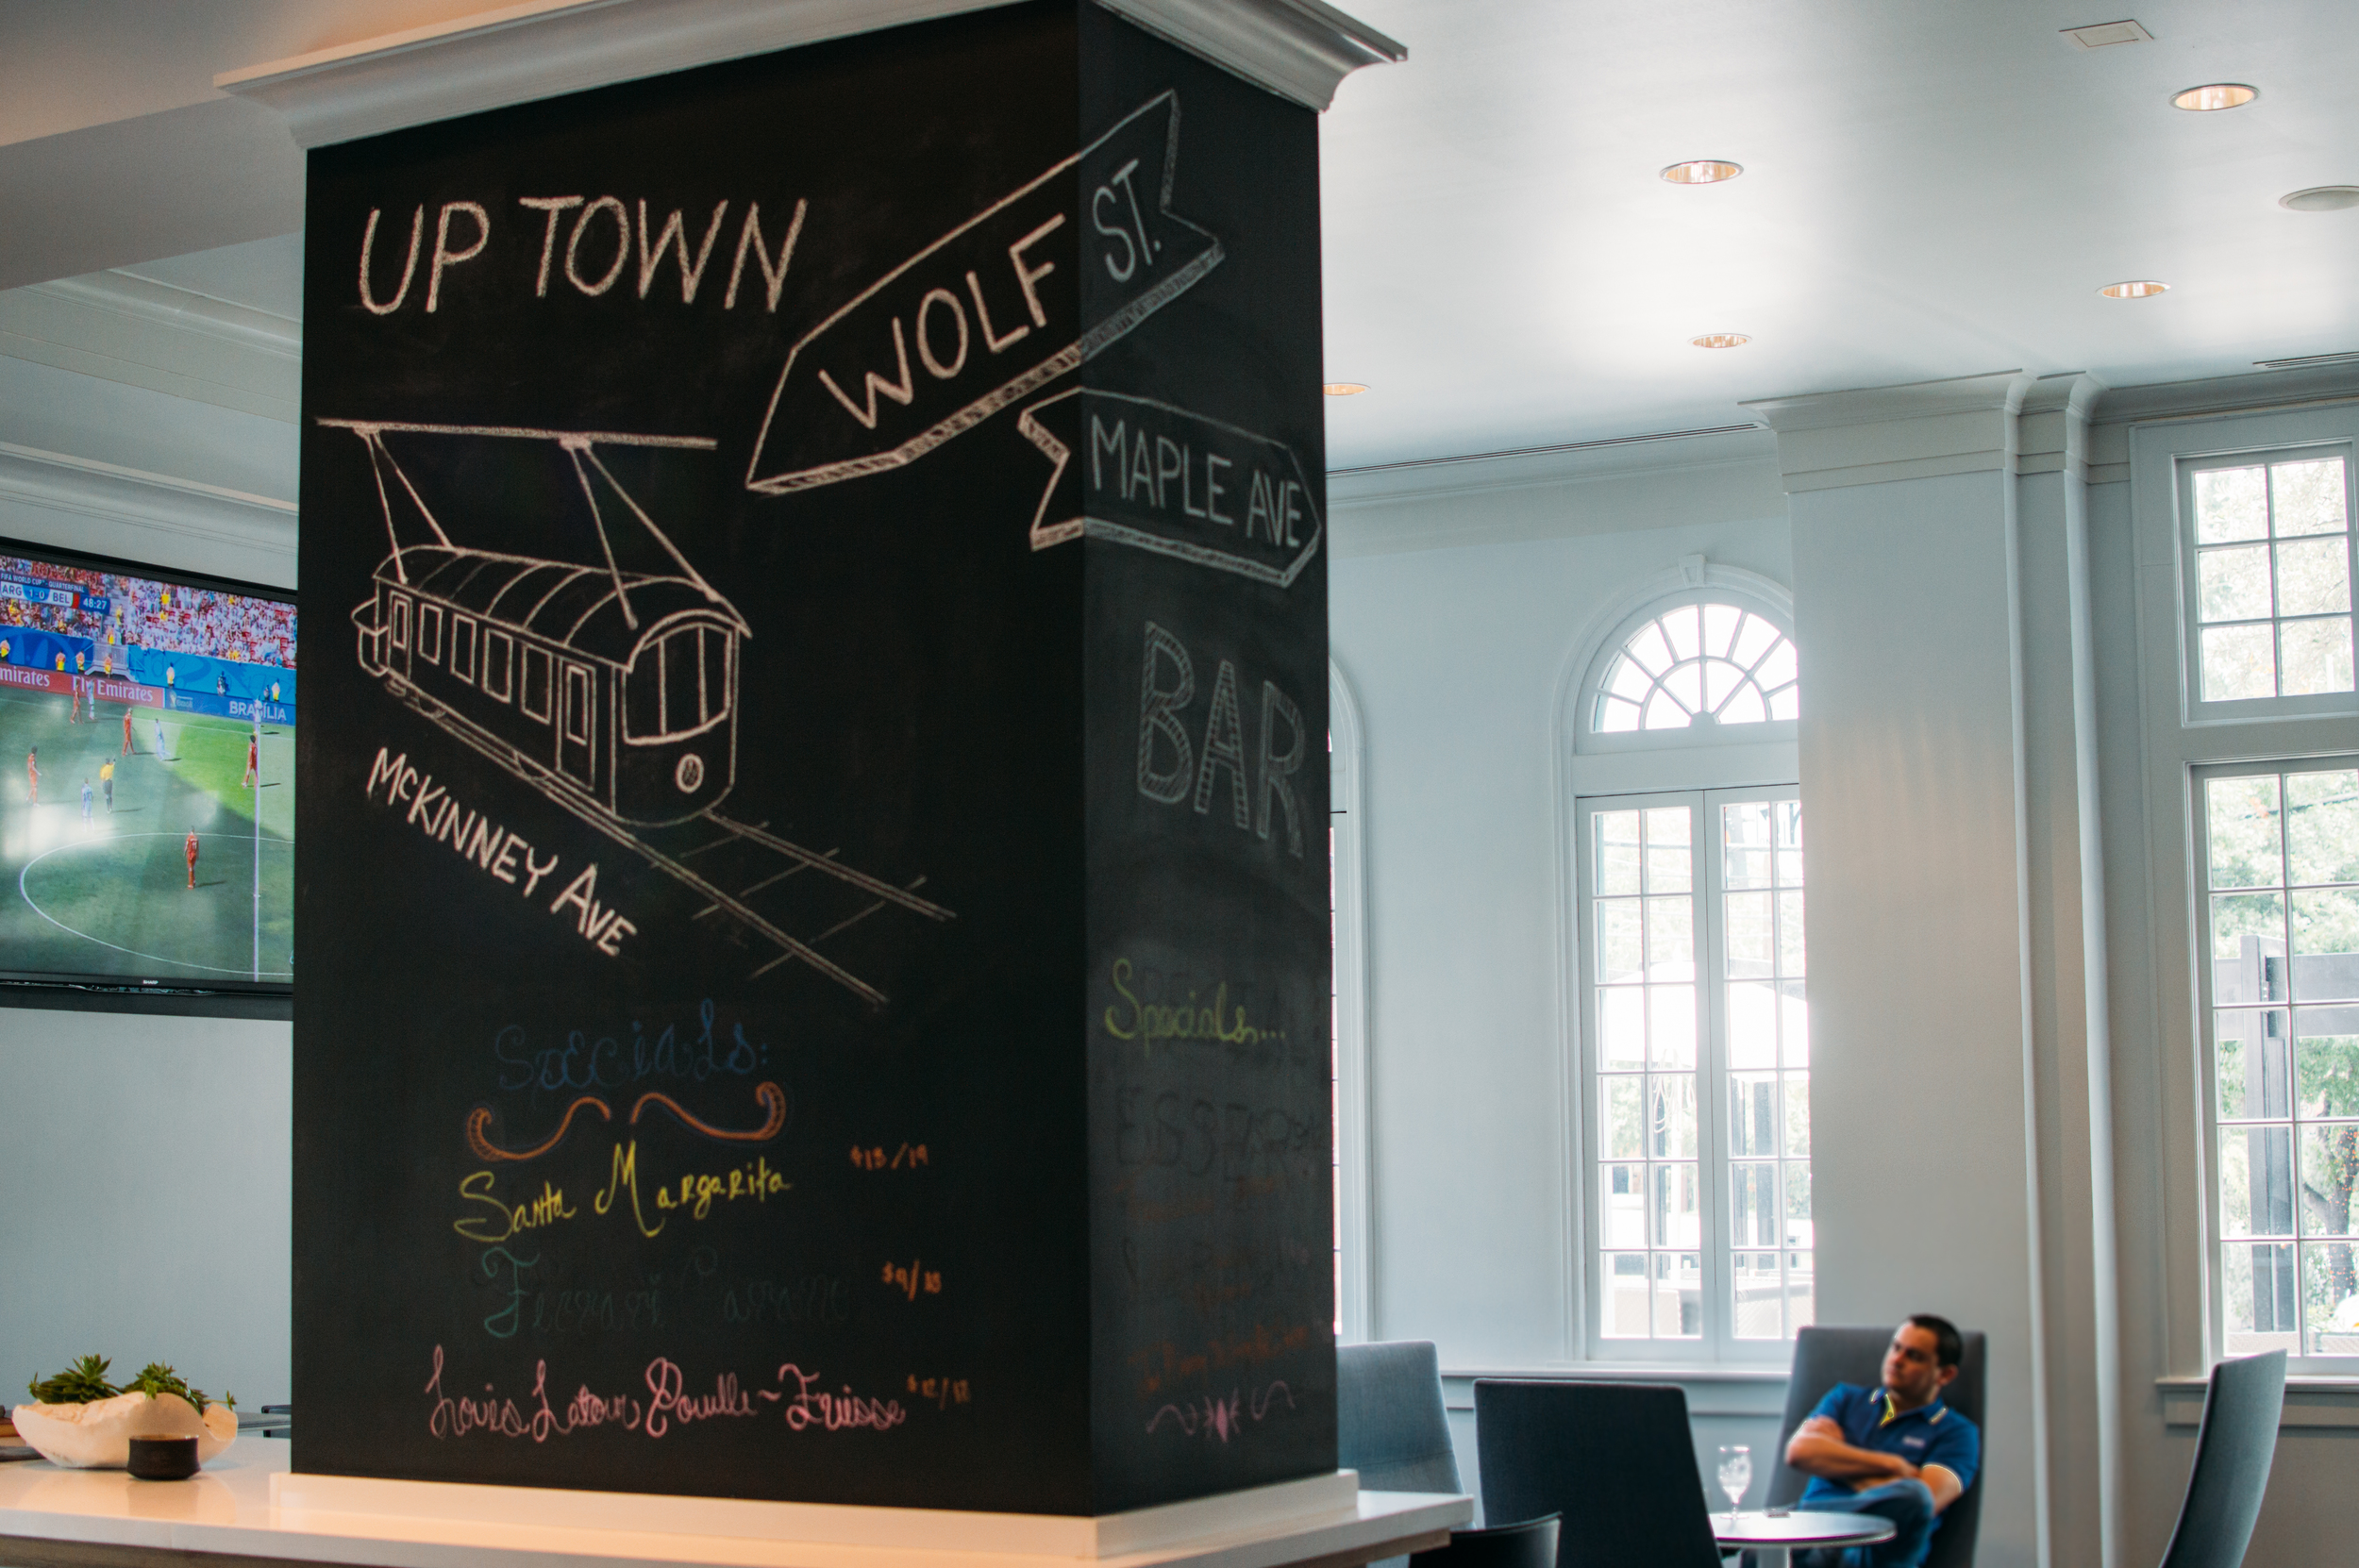 UP TOWN
WOLF ST.
MAPLE AVE
McKINNEY AVE
BAR
Specials:
Santa Margarita $15/19
Ferrari Carano $9/13
Louis Latour Pouille~Fuisse $12/17
Specials...
FIFA WORLD CUP QUARTERFINAL
ARG 1-0 BEL 48:27
mirates
Fly Emirates
BRASÍLIA
SHARP